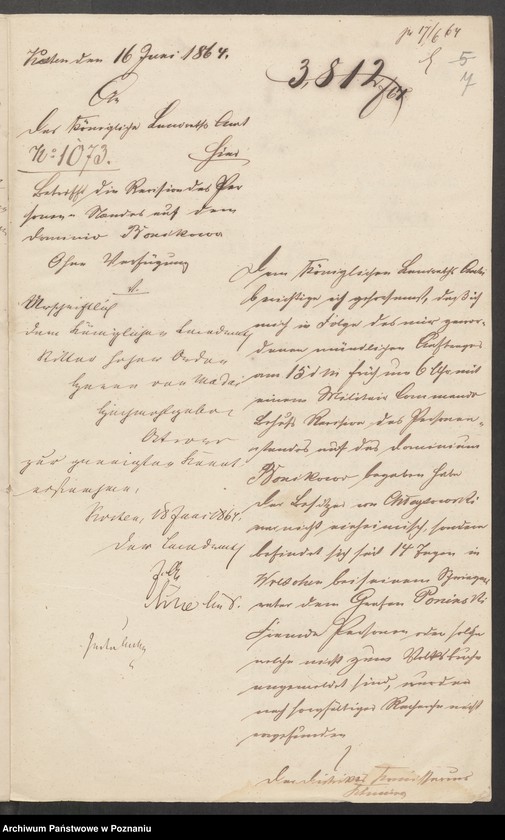 Kosten den 16 Juni 1864.
pr 17/6 64
5
7
3,812/64
An
das Königliche Landraths Amt
No 1073.
hier
Betrifft die Revision des Per
sonen-Standes auf dem
Dominio Bonikowo
Ohne Verfügung
Urschriftlich
dem Königlichen Landrath
Ritter hoher Orden
Herrn von Madai
Hochwohlgeboren
zur geneigten Kennt
nißnahme.
Kosten, 18 Juni 1864.
Der Landrath
Dem Königlichen Landraths Amte
berichte ich gehorsamst, daß ich
mich in Folge des mir gewor-
denen mündlichen Auftrages
am 15 d M früh um 6 Uhr mit
einem Militair Commando
Behufs Revision des Personen-
standes auf das Dominium
Bonikowo begeben habe
Der Besitzer von
war nicht einheimisch, sondern
befindet sich seit 14 Tagen in
Wreschen bei seinem Schwager
unter dem Grafen Poninski
Fremde Personen oder solche
welche nicht zum Volksbuche
angemeldet sind, wurden
nach sorgfältiger Recherche nicht
vorgefunden
Der Distrikts Commissarius
Archiwum Państwowe w Poznaniu